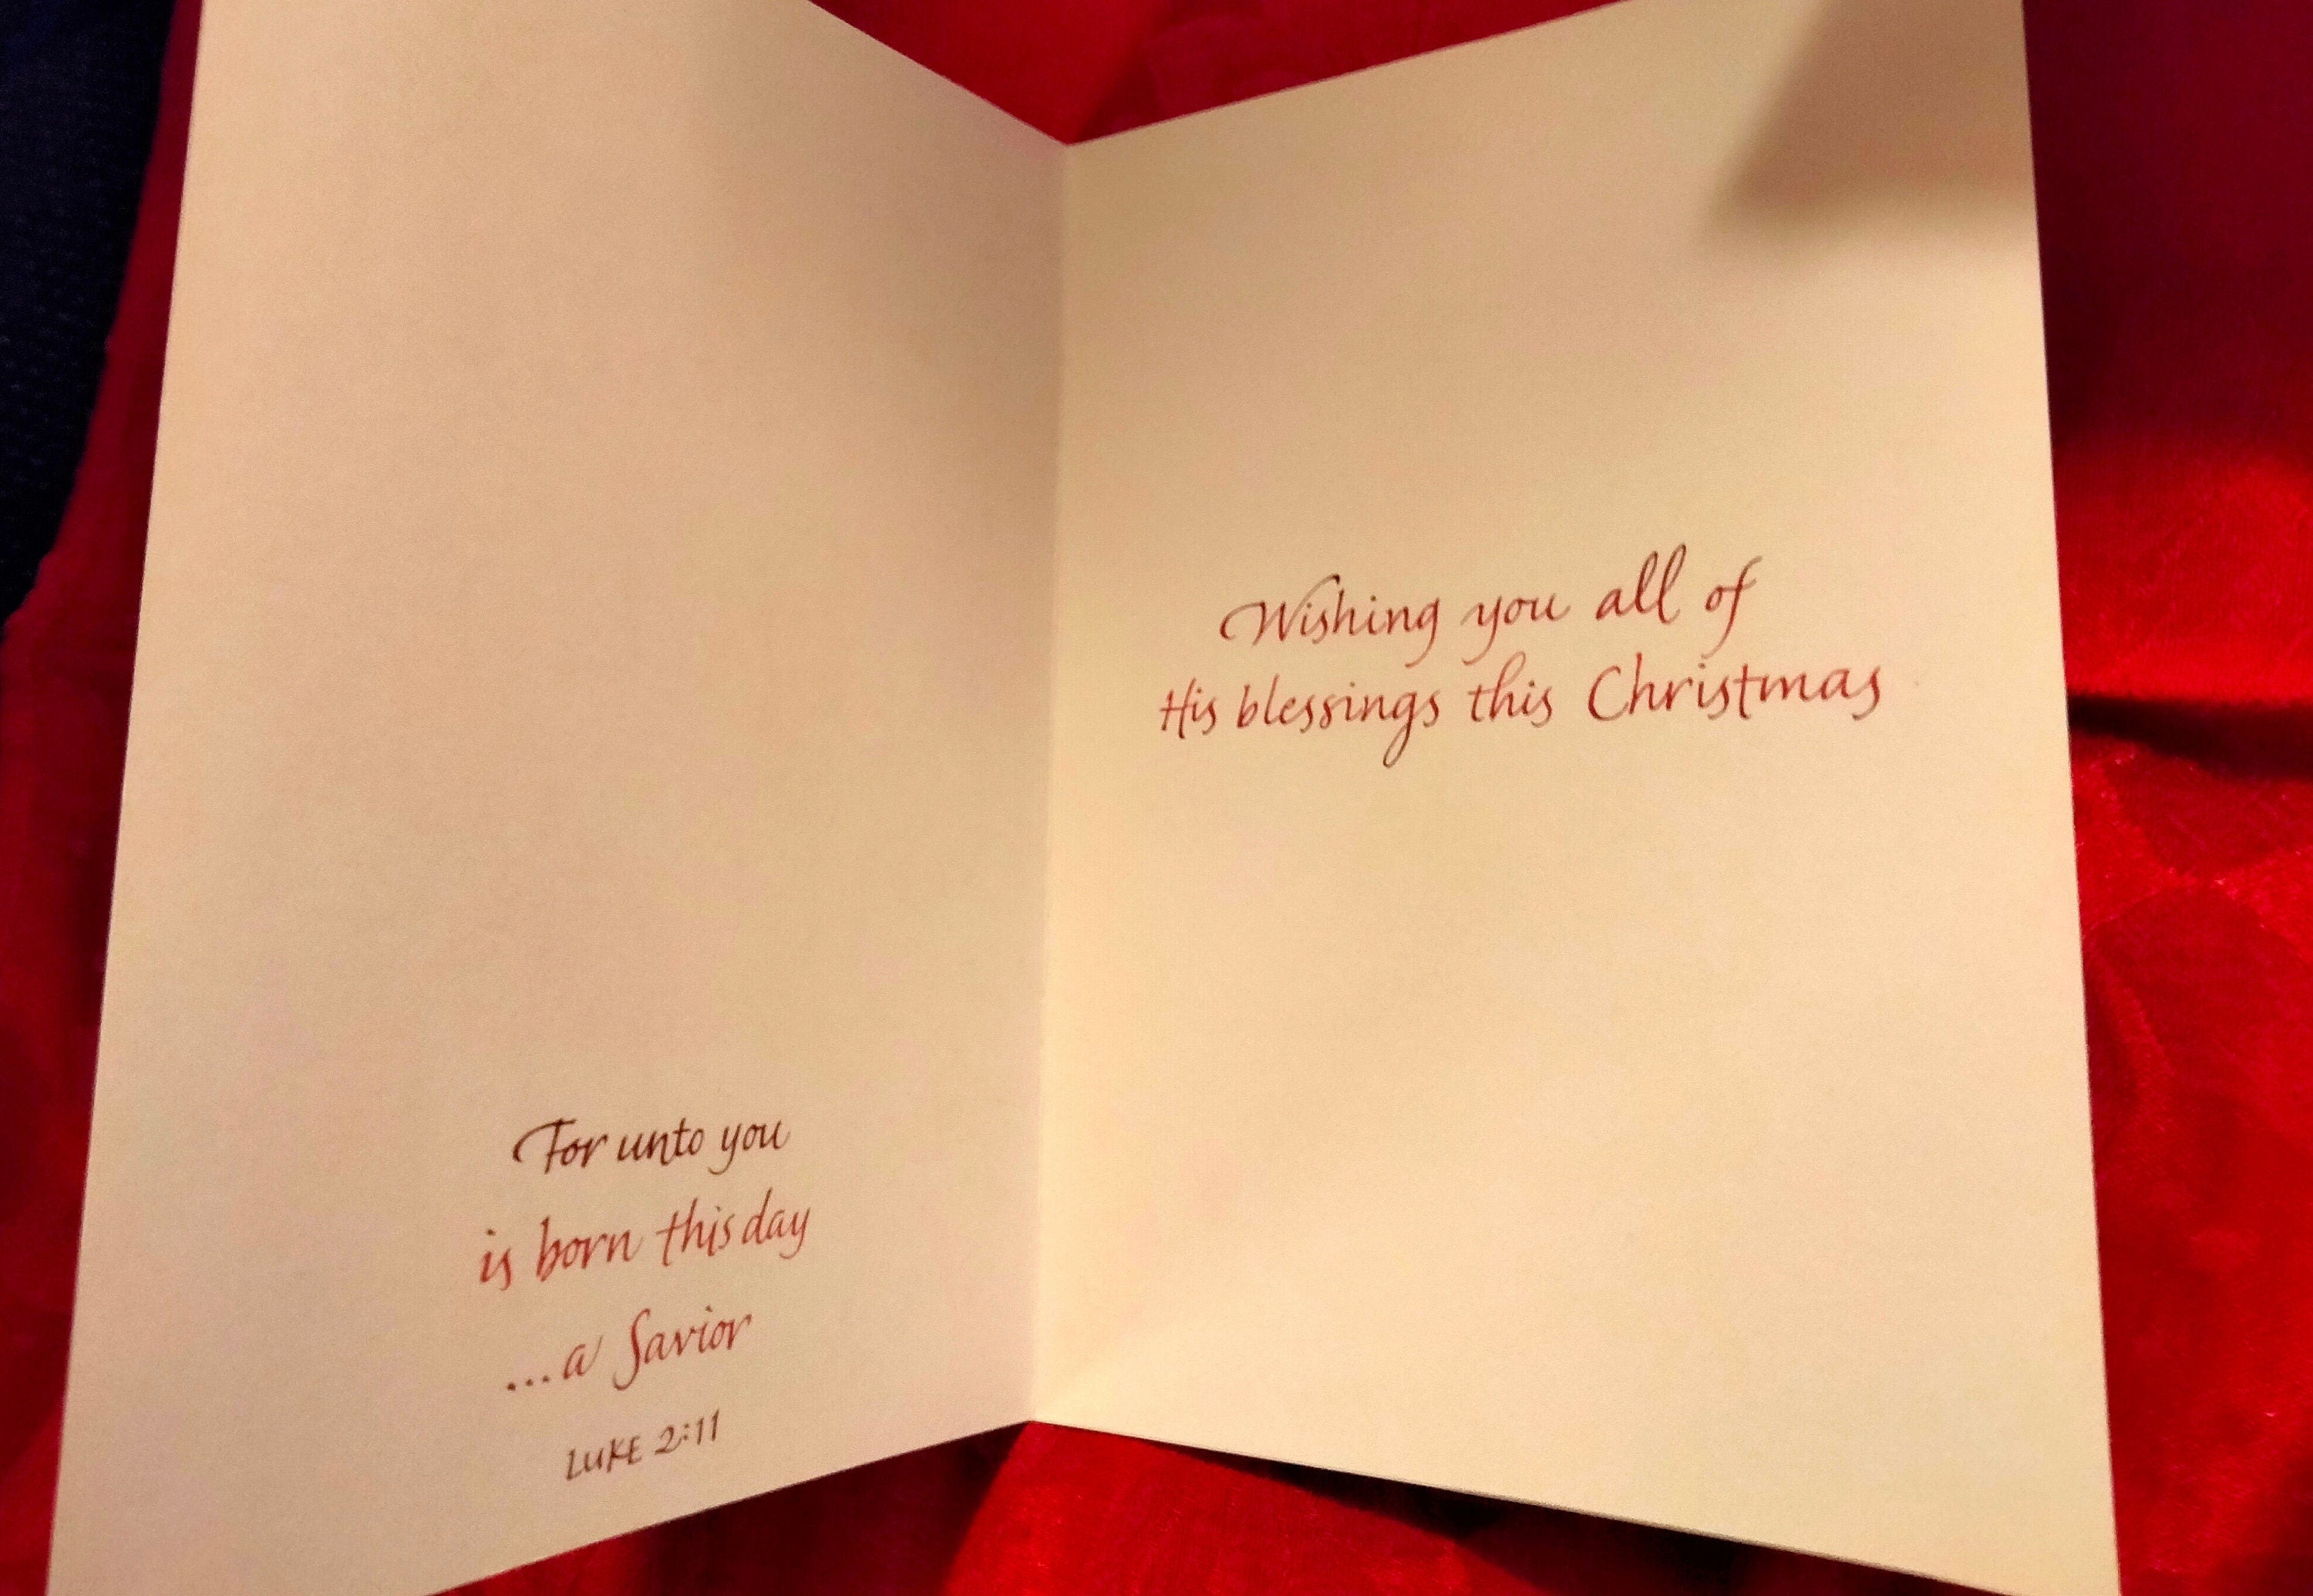 For unto you
is born this day
...a Savior
LUKE 2:11
Wishing you all of
His blessings this Christmas